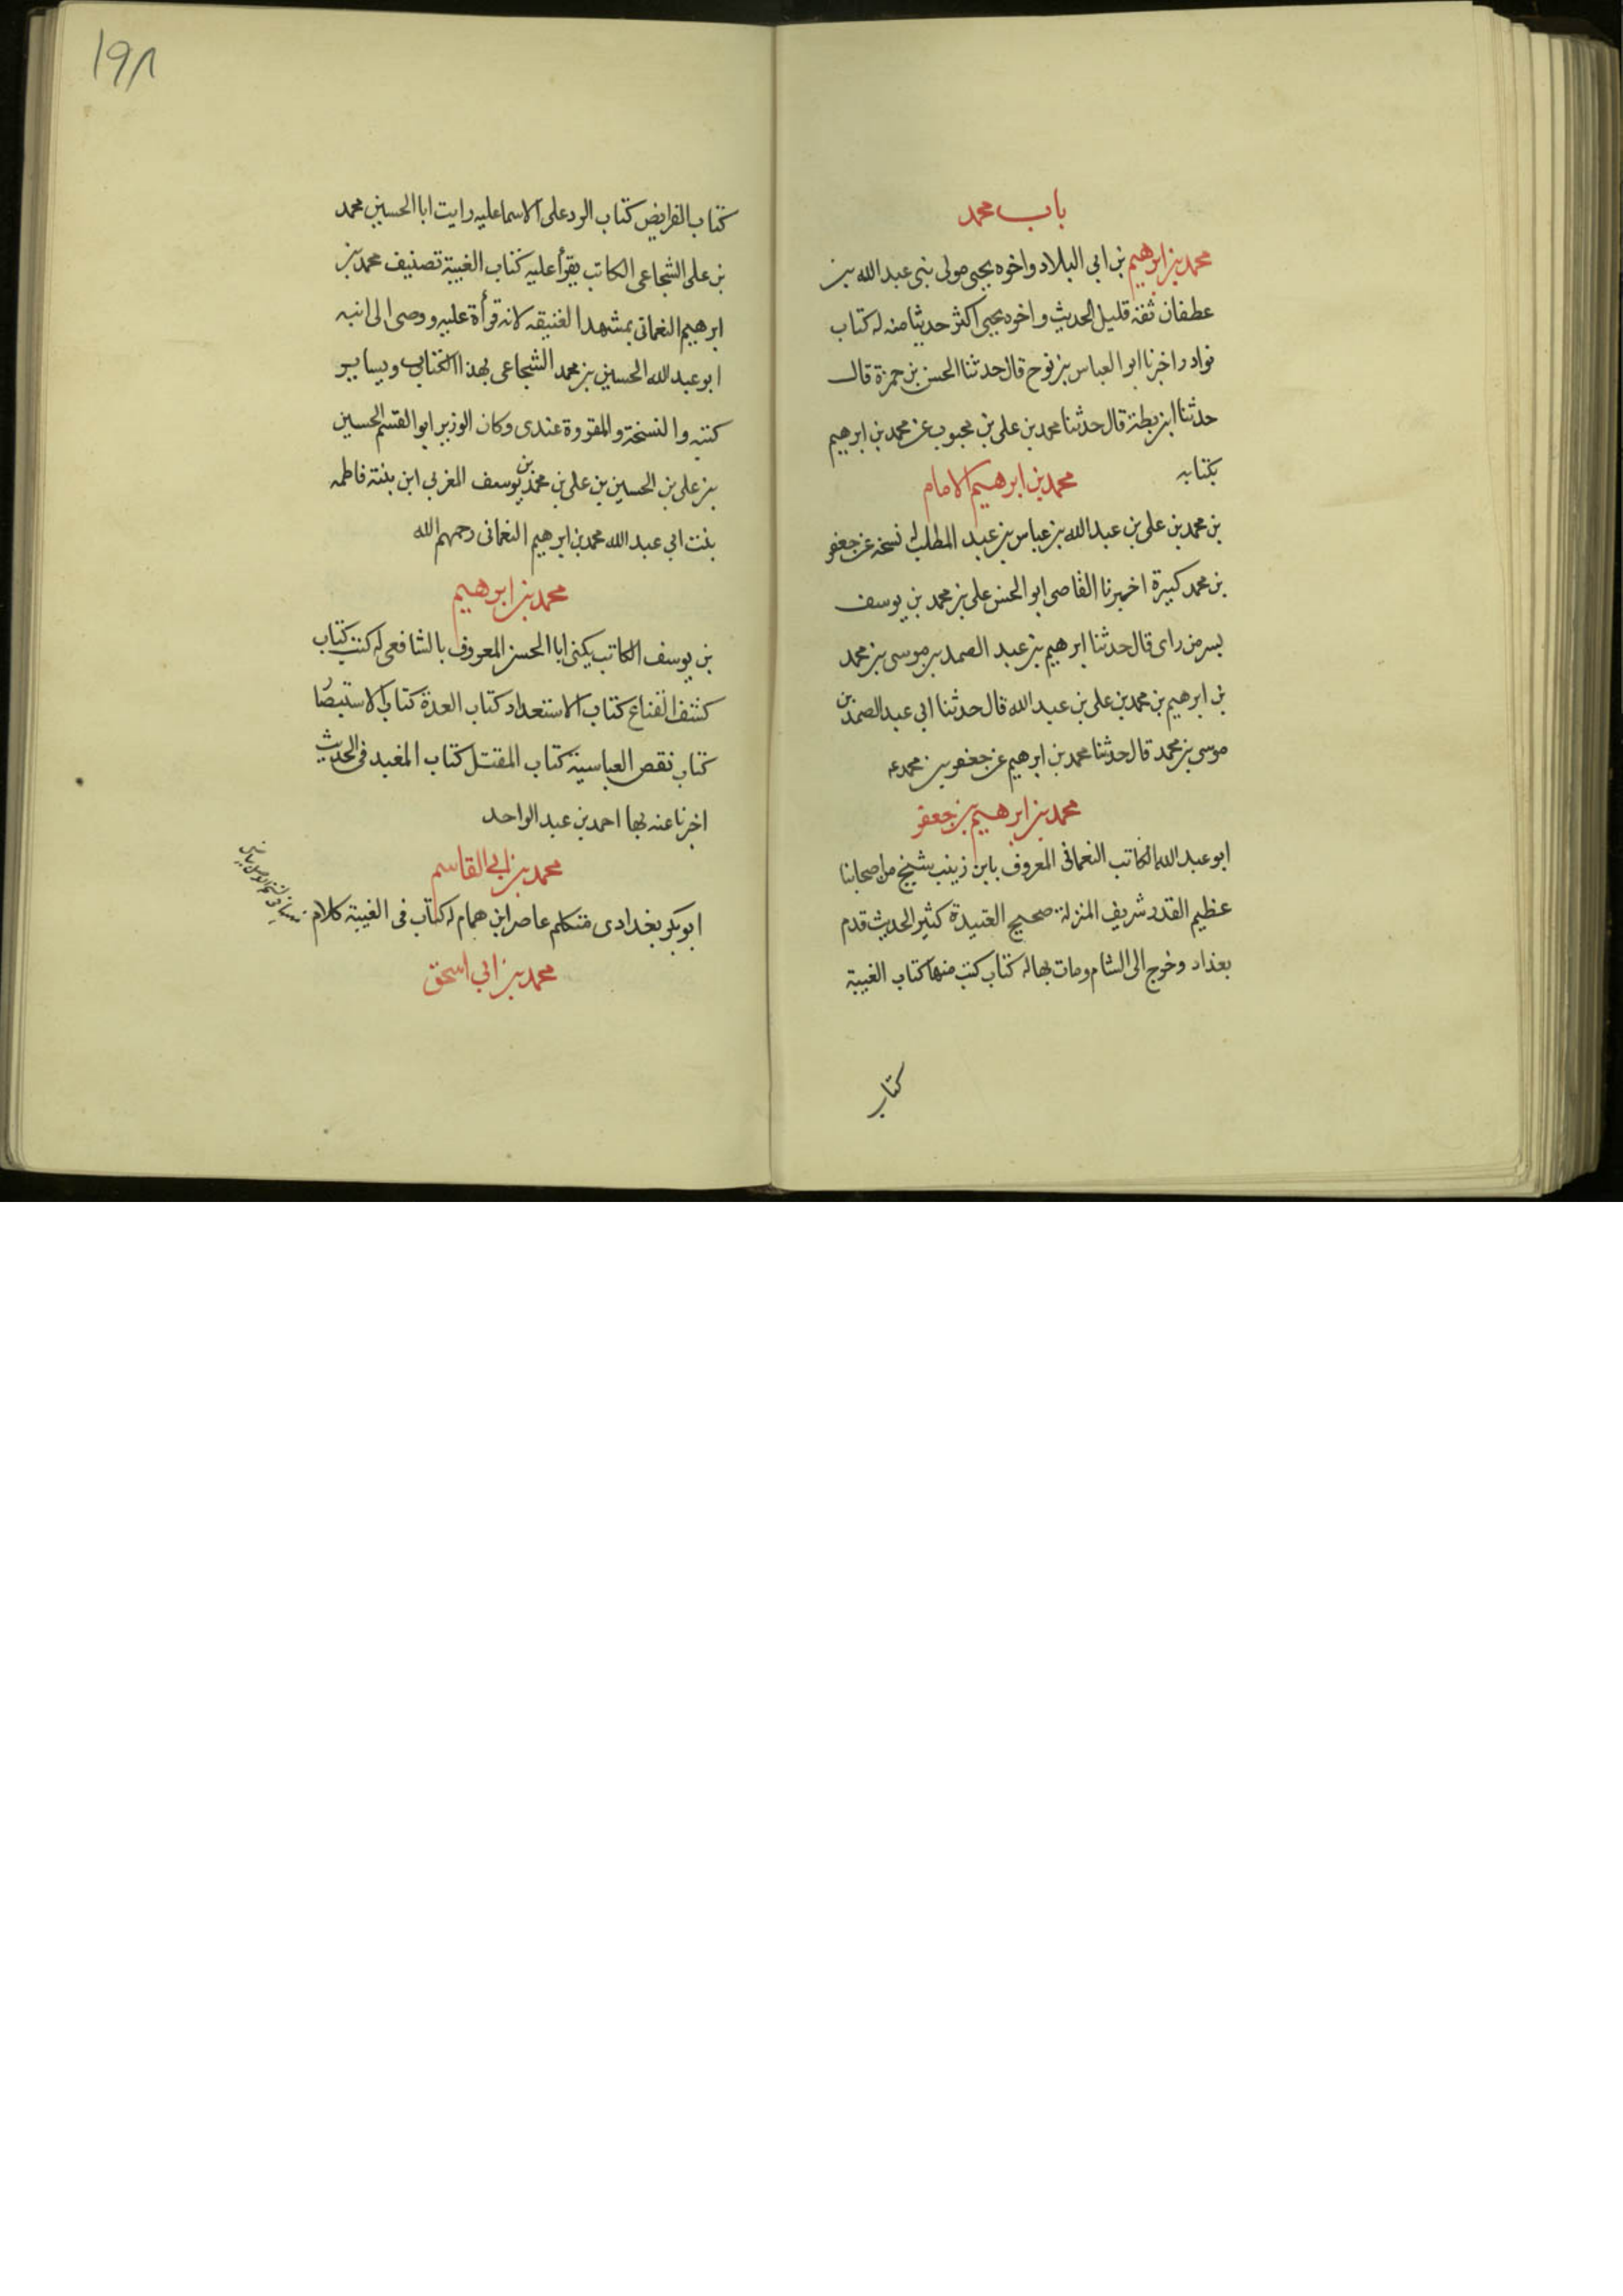 باب محمد
محمد بن ابرهيم بن ابي البلاد واخوه يحيى مولى بنى عبد الله بن
عطفان ثقة قليل الحديث واخوه يحيى اكثر حديثا منه له كتاب
نوادر اخبرنا ابو العباس بن نوح قال حدثنا الحسن بن حمزة قال
حدثنا ابن بطة قال حدثنا محمد بن على بن محبوب عن محمد بن ابرهيم
بكتابه محمد بن ابرهيم الامام
بن محمد بن على بن عبد الله بن عباس بن عبد المطلب له نسخه عن جعفر
بن محمد كبيرة اخبرنا القاضى ابو الحسن على بن محمد بن يوسف
بسر من راى قال حدثنا ابرهيم بن عبد الصمد بن موسى بن محمد
بن ابرهيم بن محمد بن على بن عبد الله قال حدثنا ابي عبد الصمد بن
موسى بن محمد قال حدثنا محمد بن ابرهيم عن جعفر بن محمد ع
محمد بن ابرهيم بن جعفر
ابو عبد الله الكاتب النعمانى المعروف بابن زينب شيخ من اصحابنا
عظيم القدر شريف المنزلة صحيح العقيدة كثير الحديث قدم
بغداد وخرج الى الشام ومات بها له كتاب كتب منها كتاب الغيبة
كتاب
١٩٨
كتاب الفرايض كتاب الرد على الاسماعليه رايت ابا الحسين محمد
بن على الشجاعى الكاتب يقرأ عليه كتاب الغيبة تصنيف محمد بن
ابرهيم النعمانى بمشهد العتيقه لانه قرأة عليه ووصى الى ابنه
ابو عبد الله الحسين بن محمد الشجاعى بهذا الكتاب وبساير
كتبه والنسخة والمقروة عندى وكان الوزير ابو القسم الحسين
بن على بن الحسين بن على بن محمد بن يوسف المغربي ابن بنته فاطمه
بنت ابي عبد الله محمد بن ابرهيم النعمانى رحمهم الله
محمد بن ابرهيم
بن يوسف الكاتب يكنى ابا الحسن المعروف بالشافعى له كتب كتاب
كشف القناع كتاب الاستعداد كتاب العدة كتاب الاستبصا
كتاب نقص العباسية كتاب المقتل كتاب المفيد فى الحديث
اخبرنا عنه بها احمد بن عبد الواحد
محمد بن ابي القاسم
ابو بكر بغدادى متكلم عاصر ابن همام له كتاب فى الغيبة كلام
محمد بن ابي اسحق